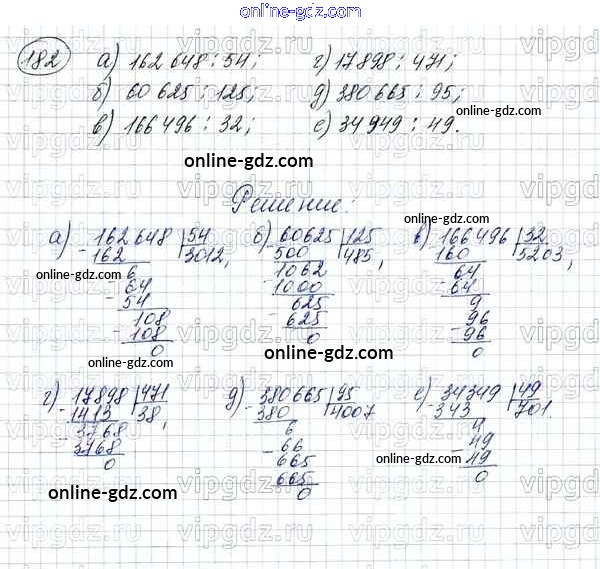 online-gdz.com
182 а) 162 648 : 54; г) 17 898 : 471;
б) 60 625 : 125; д) 380 665 : 95;
в) 166 496 : 32; е) 34 949 : 49.
online-gdz.com
online-gdz.com
Решение:
а) 162648 54 б) 60625 125 в) 166496 32
- 162 3012, - 500 485, - 160 5203,
6 1062 64
- 64 - 1000 - 64
54 625 9
108 - 625 96
- 108 0 - 96
0 0
online-gdz.com
online-gdz.com
online-gdz.com
online-gdz.com
online-gdz.com
г) 17898 471 д) 380665 95 е) 34349 49
- 1413 38, - 380 4007 - 343 701
3768 6 4
- 3768 - 66 49
0 665 - 49
665 0
0
online-gdz.com
online-gdz.com
online-gdz.com
vipgdz.com